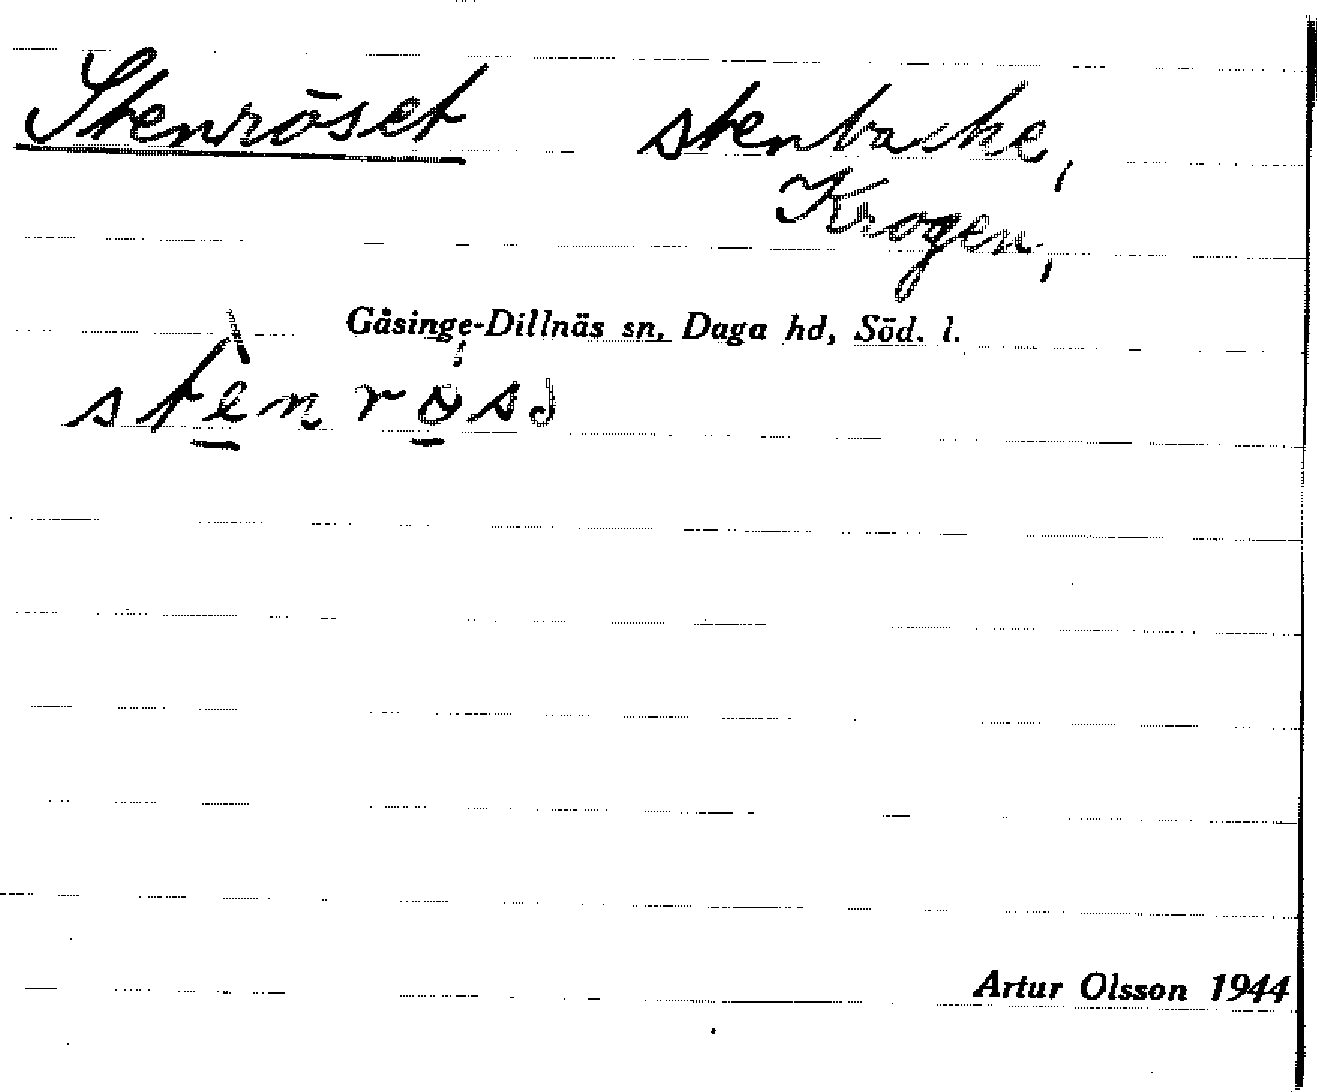 Stenröset stenbacke,
Krogen,
Gåsinge-Dillnäs sn, Daga hd, Söd. l.
Artur Olsson 1944